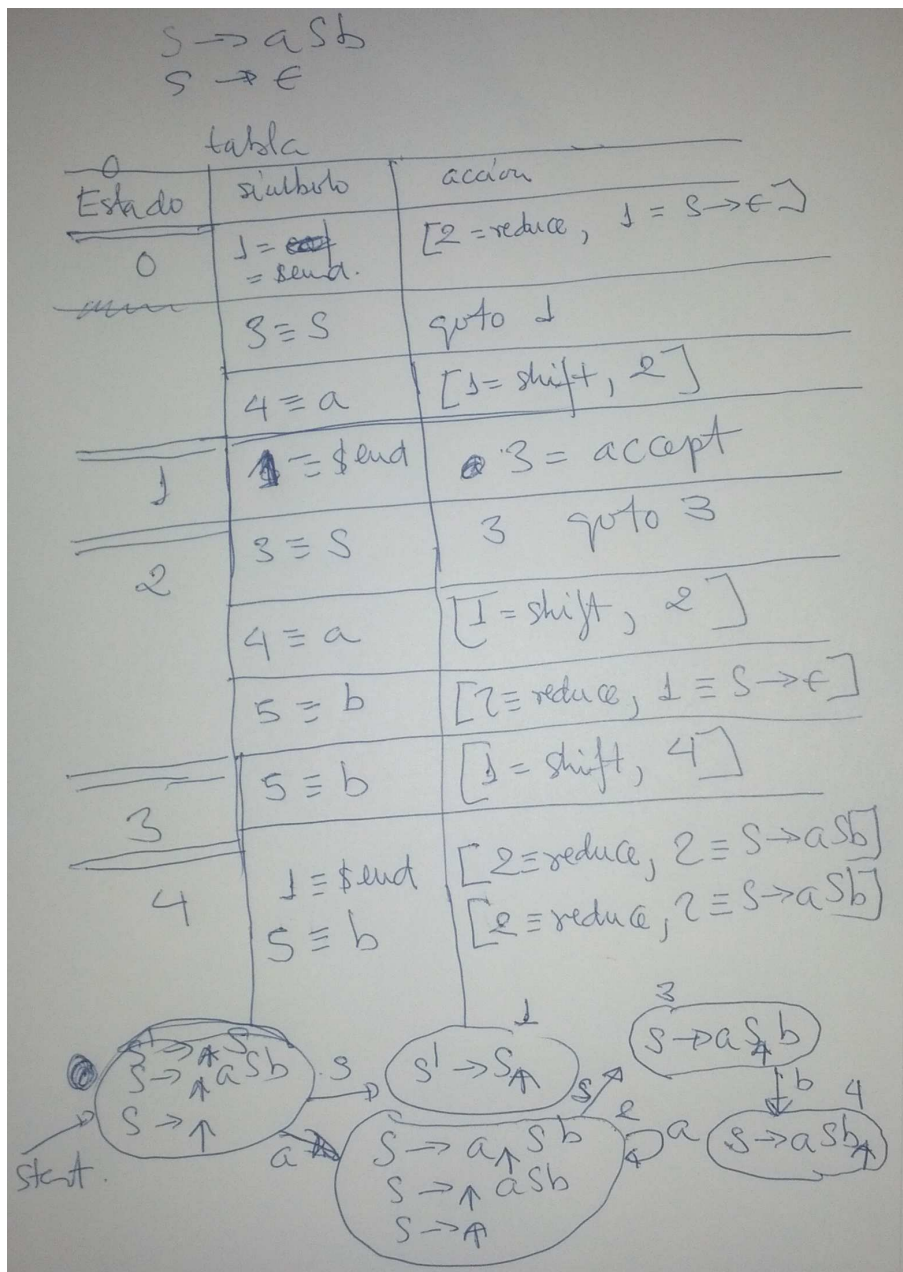 S → aSb
S → ϵ
tabla
Estado símbolo acción
0 1 = = $end. [2 = reduce, 1 = S → ϵ]
3 ≡ S goto 1
4 ≡ a [1 = shift, 2]
1 1 ≡ $end 3 = accept
2 3 ≡ S 3 goto 3
4 ≡ a [1 = shift, 2]
5 ≡ b [2 ≡ reduce, 1 ≡ S → ϵ]
3 5 ≡ b [1 = shift, 4]
4 1 ≡ $end [2 ≡ reduce, 2 ≡ S → aSb]
5 ≡ b [2 ≡ reduce, 2 ≡ S → aSb]
0
S' → ↑ S
S → ↑ aSb
S → ↑
Start.
S
a
1
S' → S↑
2
S → a↑Sb
S → ↑aSb
S → ↑
a
S
3
S → aS↑b
b
4
S → aSb↑